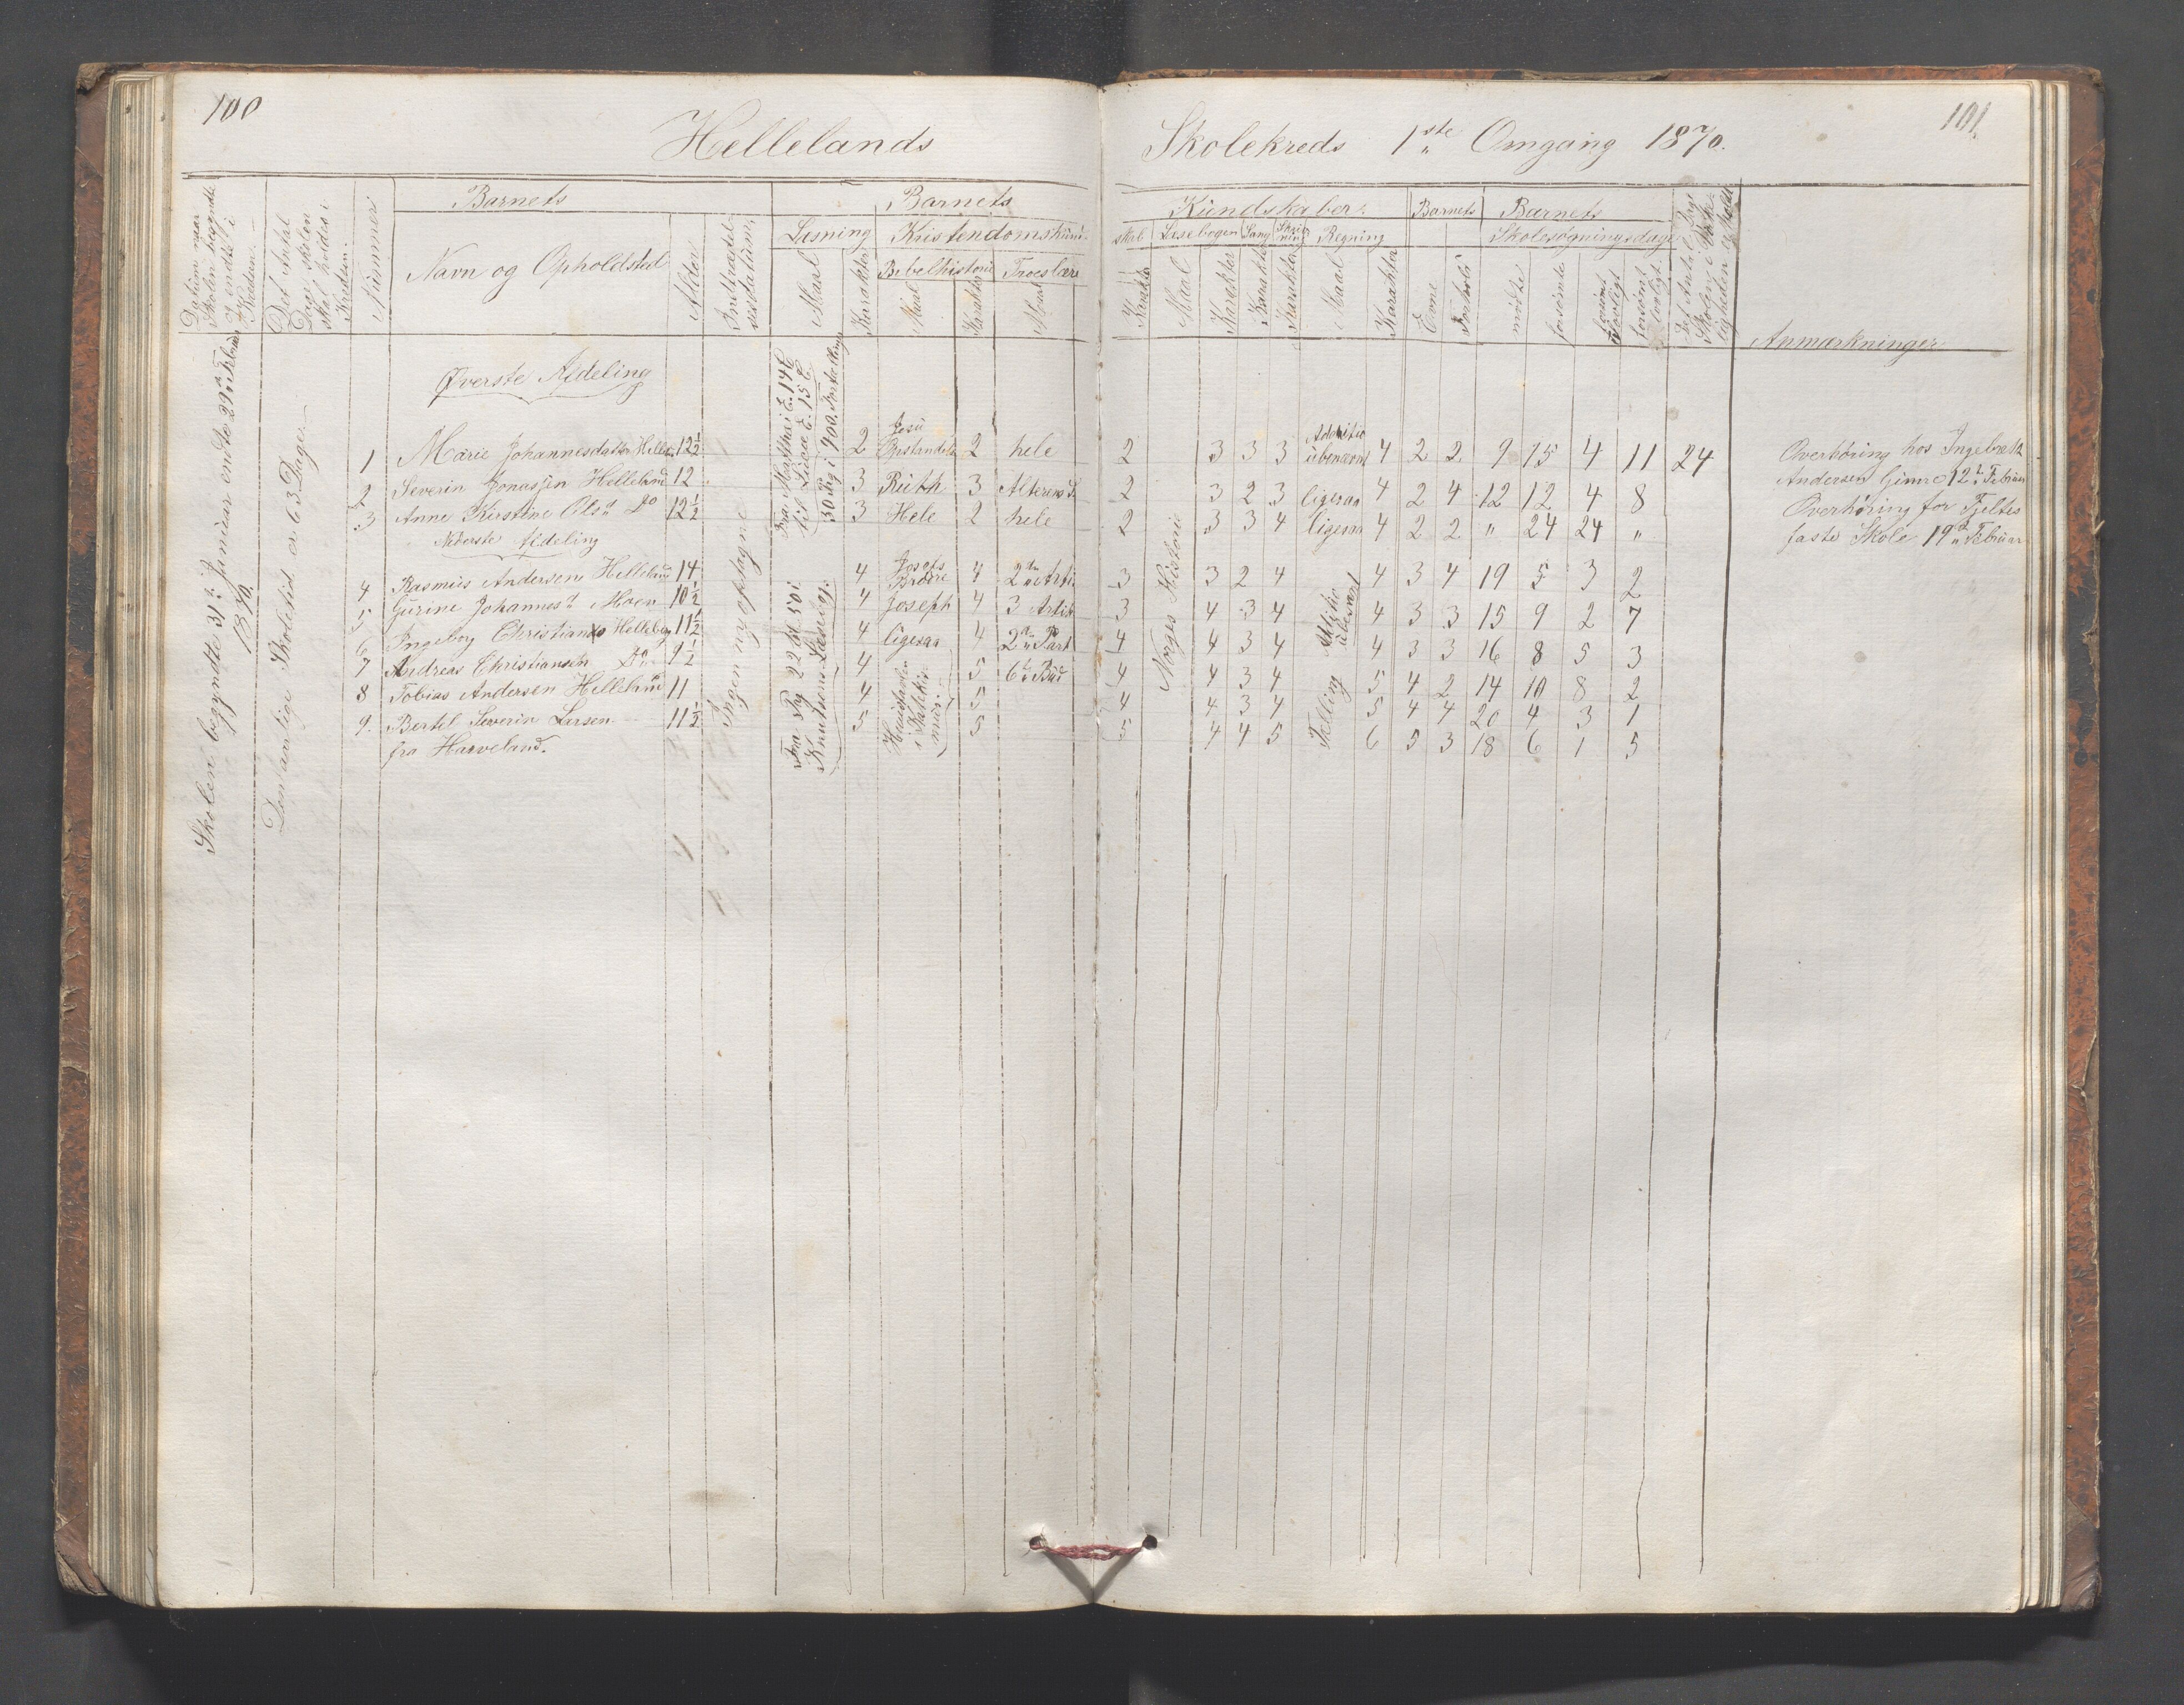 100
Hellelands
Skolekreds 1ste Omgang 1870.
101.
Datum naar Skolen begyndte og endte i Kredsen.
Det Antal Dage skolen skal holdes i Kredsen.
Nummer
Barnets
Navn og Opholdsted
Alder
Indtrædelsesdatum.
Barnets
Læsning
Maal
Karakter
Kristendomskund-
Bibelhistorie
Maal
Karakter
Troeslære
Maal
Kundskaber.
skab
Karakter
Læsebogen
Maal
Karakter
Sang
Karakter
Skrivning
Karakter
Regning
Maal
Karakter
Barnets
Evne
Forhold
Barnets
Skolesøgningsdage
mødte
forsømte
forsømt lovligt
forsømt ulovligt
Det Antal Dage Skolen i
Anmærkninger
Skolen begyndte 31te Januar endte 29de Februar 1870.
Den aarlige Skoletid er 63 Dage.
Ingen ny optagne
Øverste Afdeling
Fra Matthæi E. 14 C til Lucæ E. 15 C.
30 Pag i 900. Fortælling
1 Marie Johannesdatter Hellel. 12½ 2 Jesu Opstandelse 2 hele 2 3 3 3 Additio ubenævnt 4 2 2 9 15 4 11 24
2 Severin Jonassen Helleland 12 3 Ruth 3 Alterens S. 2 3 2 3 ligesaa 4 2 4 12 12 4 8
3 Anne Kirstine Olsd. Do 12½ 3 Hele 2 hele 2 3 3 4 ligesaa 4 2 2 " 24 24 "
Nederste Afdeling
4 Rasmus Andersen Helleland 14 4 Josefs Brødre 4 2den Arti 3 3 2 4 4 3 4 19 5 3 2
5 Gurine Johannesd. Moen 10½ 4 Joseph 4 3 Artik 3 4 3 4 4 3 3 15 9 2 7
6 Ingeborg Christians Helleland 11½ 4 ligesaa 4 2den Part 4 4 3 4 4 3 3 16 8 5 3
7 Andreas Christiansen Do 9½ 4 5 6te Bud 4 4 3 4 5 4 2 14 10 8 2
8 Tobias Andersen Helleland 11 4 5 4 4 3 4 5 4 4 20 4 3 1
9. Bertel Severin Larsen 11½ 5 5 5 4 4 5 6 5 3 18 6 1 5
fra Harveland.
Fra Pag 22 til 50 i
Knutsens Læsebog.
Norges Historie
Additio ubenævnt
Telling
Overhøring hos Ingebreth
Andersen Gimre 12te Februar
Overhøring for Tjeltes
faste Skole 19de Februar